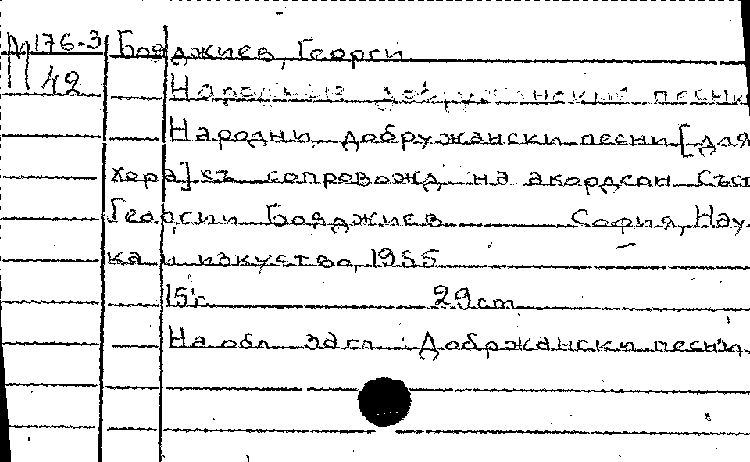 М176-3 Бояджиев, Георги
42 Народные добружанские песни
Народни добружански песни [для
хора] съ сопровожд. на акордеон. Съст.
Георгии Бояджиев София, Нау
ка и изкуство, 1955
15 с. 29cm
На обл. загл.: Добржански песни